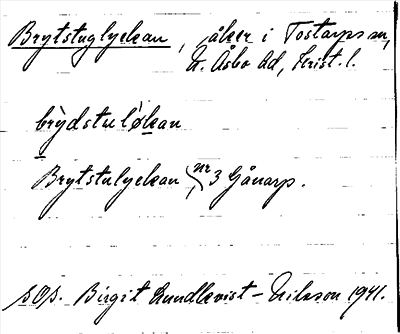 Brytstuglyckan, åker i Tostarps sn,
N. Åsbo hd, Krist. l.
brydstuløkan
Brytstulyckan, nr 3 Gånarp.
SOS. Birgit Rundkvist-Nilsson 1941.